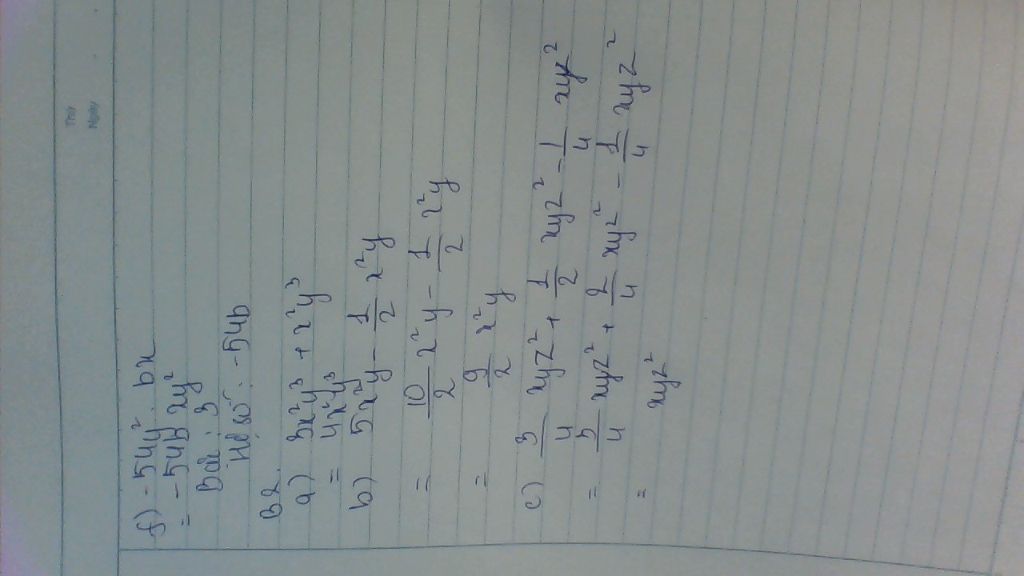 Thứ
Ngày
f) -54y². bx
= -54b xy²
Bậc: 3
Hệ số: -54b
B2.
a) 3x²y³ + x²y³
= 4x²y³
b) 5x²y - 1/2 x²y
= 10/2 x²y - 1/2 x²y
= 9/2 x²y
c) 3/4 xyz² + 1/2 xyz² - 1/4 xyz²
= 3/4 xyz² + 2/4 xyz² - 1/4 xyz²
= xyz²